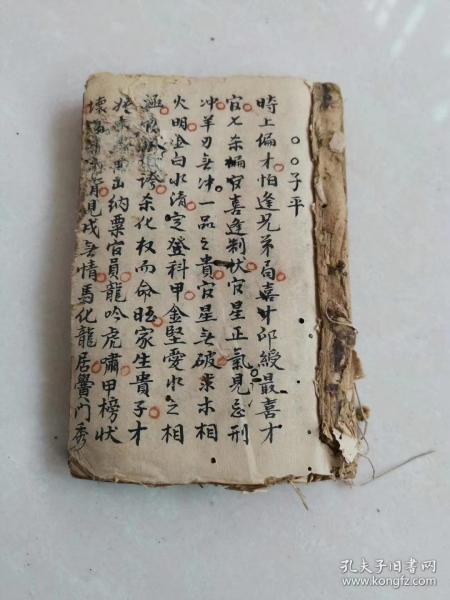 ○○子平
時上偏才怕逢兄弟局喜才印綬最喜才
官七杀偏官喜逢制伏官星正氣見忌刑
冲羊刃無冲一品之貴官星無破柬木相
火明金白水清定登科甲金堅愛水之相
誇杀化权而命晤家生貴子才
出納粟官員龍吟虎嘯甲榜状
見戌無情馬化龍居黌門秀
孔夫子旧书网
www.kongfz.com